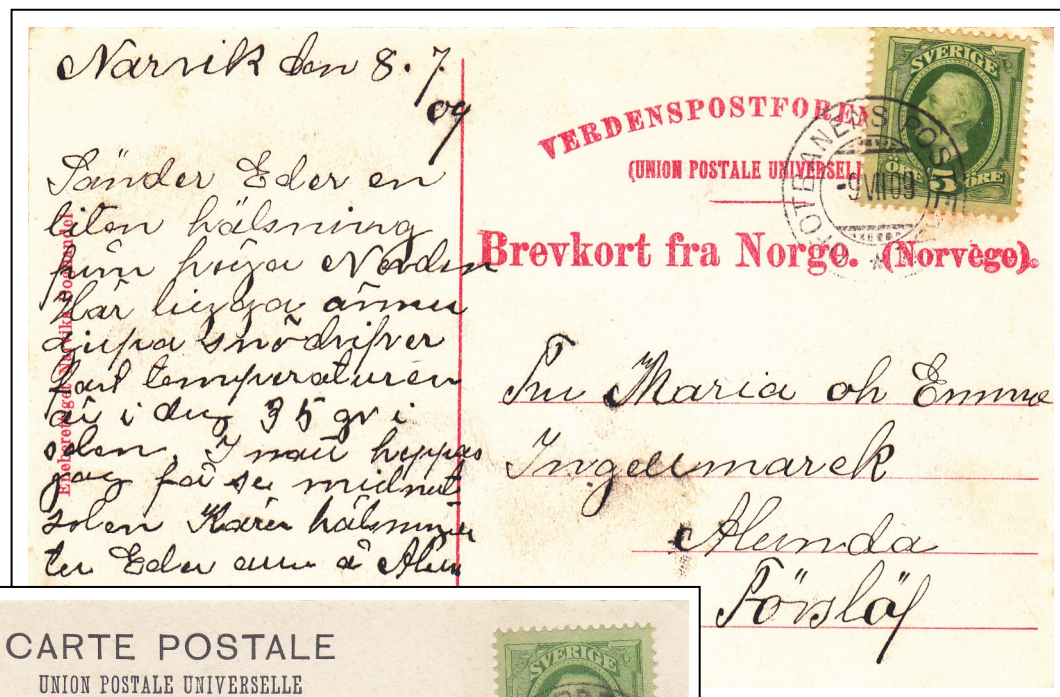 Narvik den 8.7
09
Sänder Eder en
liten hälsning
från höga Norden
Här ligga ännu
djupa snödrifver
fast temperaturen
är i dag 35 gr i
solen. I natt hoppas
jag få se midnat
solen Kära hälsningar
till Eder alla å Alun
Eneberettiget Narviks Boghandel
VERDENSPOSTFOREN
(UNION POSTALE UNIVERSELL
Brevkort fra Norge. (Norvège).
SVERIGE
5
ÖRE ÖRE
OTBANENS POS
-9 VII 09
Fru Maria oh Emma
Ingelmarck
Alunda
Förslöf
CARTE POSTALE
UNION POSTALE UNIVERSELLE
SVERIGE